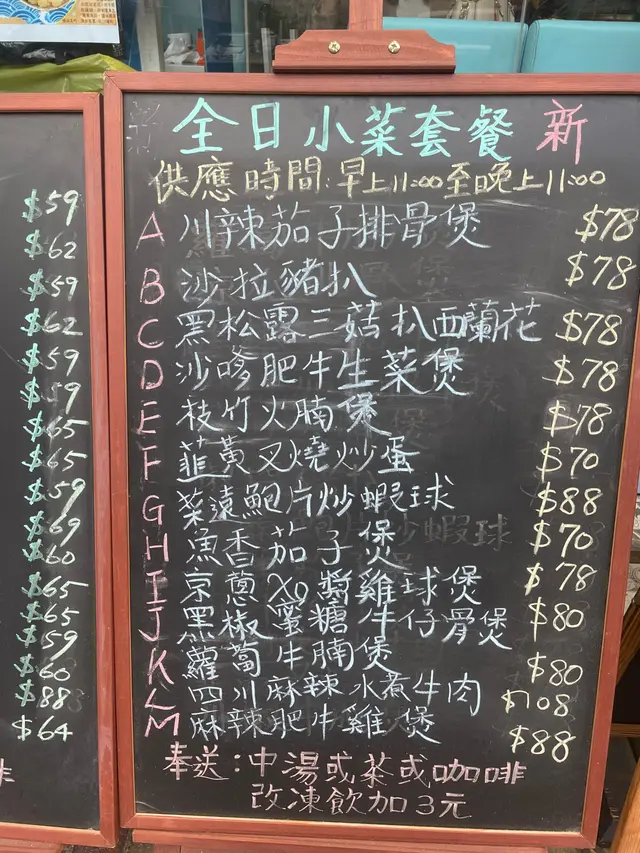 $59
$62
$59
$62
$59
$59
$65
$65
$59
$69
$60
$65
$65
$59
$60
$88
$64
啡
全日小菜套餐 新
供應時間:早上11:00至晚上11:00
A 川辣茄子排骨煲 $78
B 沙拉豬扒 $78
C 黑松露三菇扒西蘭花 $78
D 沙嗲肥牛生菜煲 $78
E 枝竹火腩煲 $78
F 韮黃叉燒炒蛋 $70
G 菜遠鮑片炒蝦球 $88
H 魚香茄子煲 $70
I 京蔥XO醬雞球煲 $78
J 黑椒蜜糖牛仔骨煲 $80
K 蘿蔔牛腩煲 $80
L 四川麻辣水煮牛肉 $108
M 麻辣肥牛雞煲 $88
奉送:中湯或茶或咖啡
改凍飲加3元